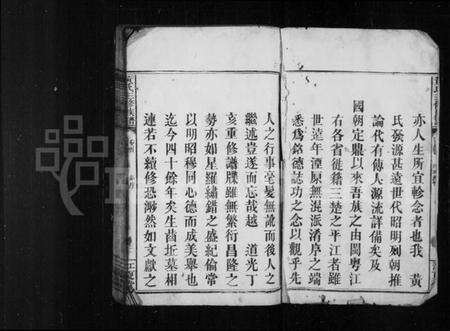 亦人生所宜軫念者也我 黃
氏發源甚遠世代昭明列朝推
論代有傳人源流詳備矣及
國朝定鼎以來吾族之由閩粵江
右各省徙籍三楚之平江者雖
世遠年湮原無混派淆序之端
悉為銘德誌功之念以觀乎先
人之行事毫髮無訛而後人之
繼述豈遂而忘哉越 道光丁
亥重修譜牒雖無繁衍昌隆之
勢亦如星羅繡錯之盛紀倫常
以明昭穆同心德而咸美舉也
迄今四十餘年矣生齒坵墓相
連若不續修恐渺然如文獻之